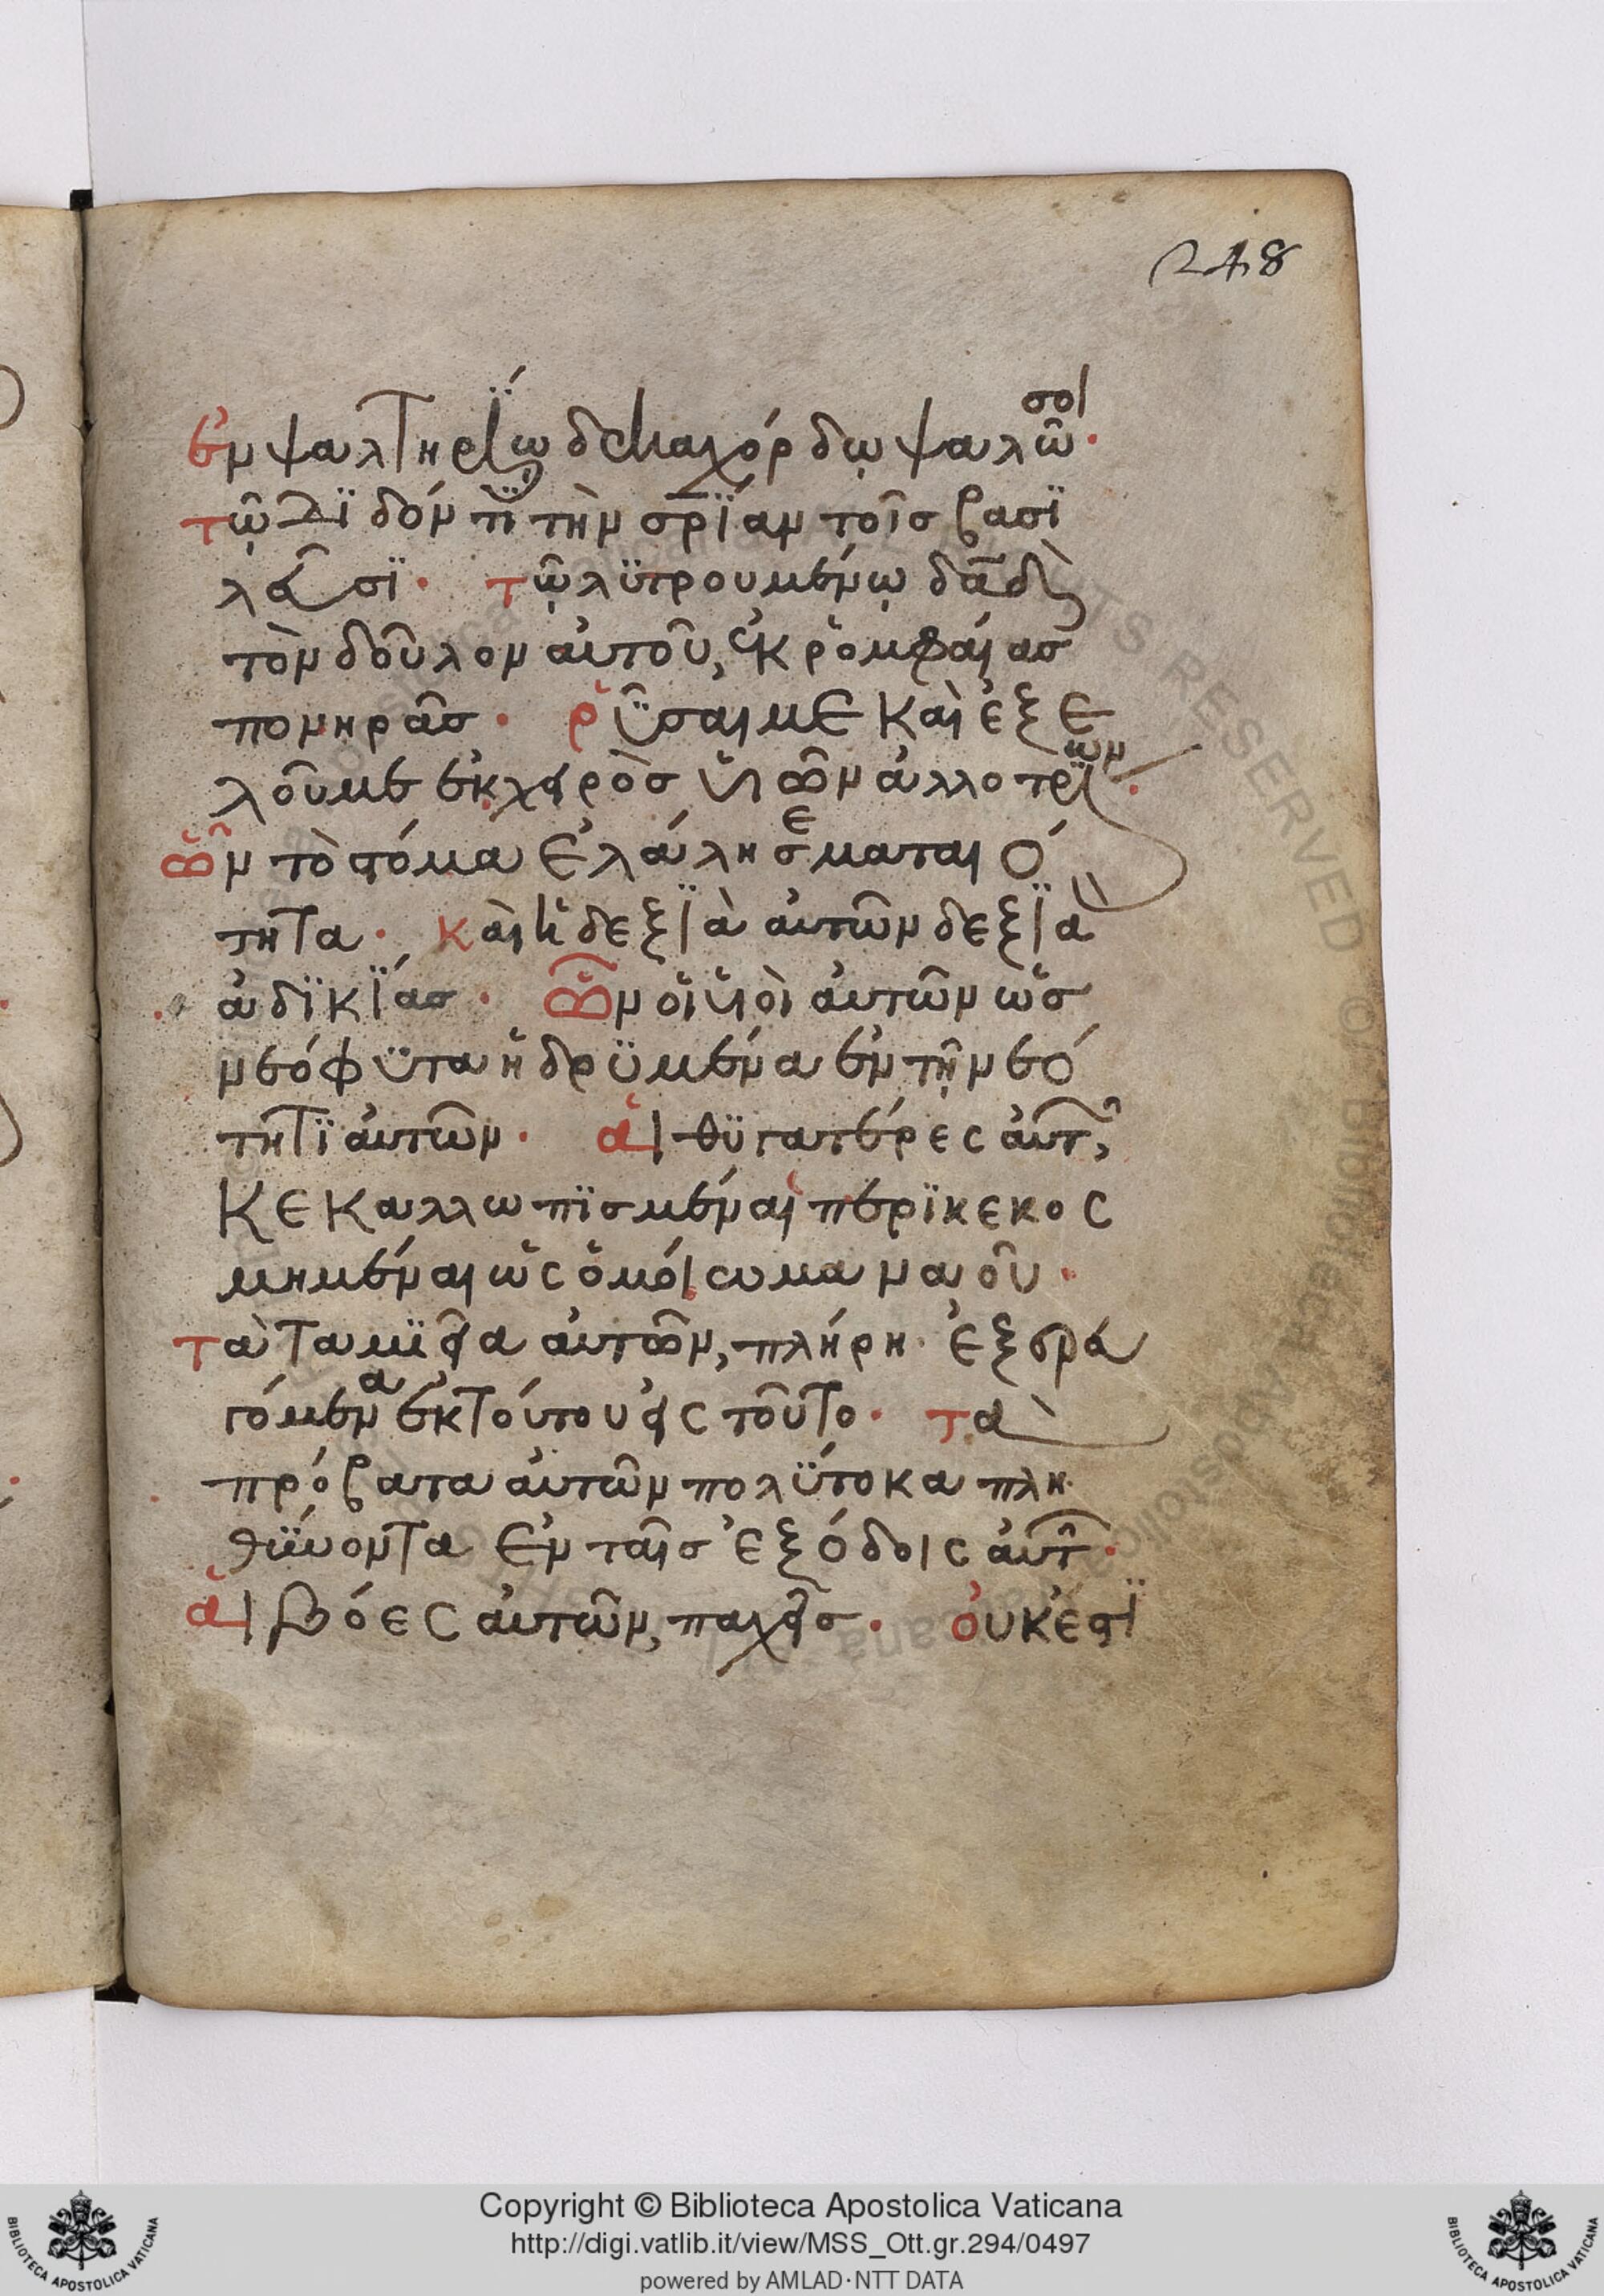 248
ἐν ψαλτηρίῳ δεκαχόρδῳ ψαλῶ σοι·
τῷ διδόντι τὴν σρίαν τοῖσ βασι
λεῦσι· τῷ λυτρουμένῳ δαδ
τὸν δοῦλον αὐτοῦ, ἐκ ῥομφαίασ
πονηρᾶσ· ῥῦσαι με καὶ ἐξε
λοῦ με ἐκ χειρὸσ υἱῶν ἀλλοτρίων·
ὧν τὸ στόμα ἐλάλησε ματαιό
τητα· καὶ ἡ δεξϊὰ αὐτῶν δεξϊὰ
ἀδϊκΐασ· ὧν οἱ υἱοὶ αὐτῶν ὡσ
νεόφϋτα ἡδρϋμένα ἐν τῇ νεό
τητϊ αὐτῶν· αἱ θϋγατέρες αὐτῶν,
κεκαλλωπϊσμέναι περϊκεκοσ
μημέναι ὡς ὁμοίωμα ναοῦ·
τὰ ταμϊεῖα αὐτῶν, πλήρη· ἐξερευ
γόμενα ἐκ τούτου εἰς τοῦτο· τὰ
πρόβατα αὐτῶν πολϋτόκα πλη
θύνοντα ἐν ταῖσ ἐξόδοις αὐτῶν·
αἱ βόες αὐτῶν, παχεῖσ· οὐκ ἔστϊ
Copyright © Biblioteca Apostolica Vaticana
http://digi.vatlib.it/view/MSS_Ott.gr.294/0497
powered by AMLAD·NTT DATA